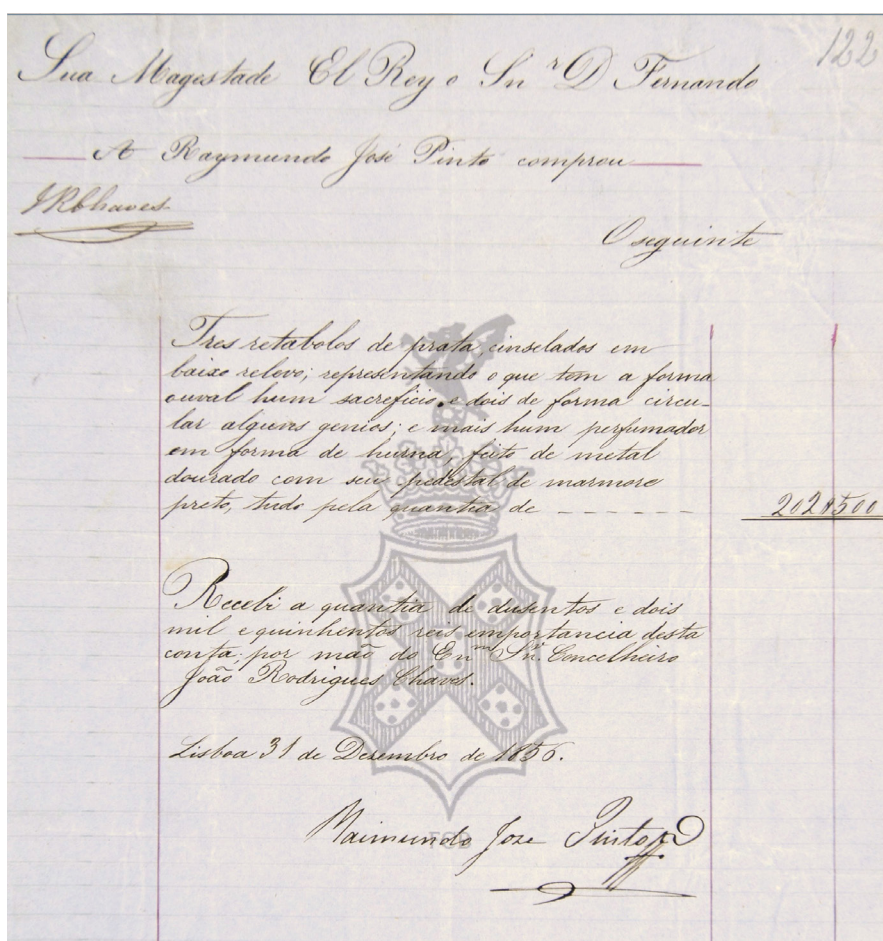 122
Sua Magestade El Rey o Snr D Fernando
A Raymundo José Pinto comprou
JRChaves
O seguinte
Tres retabolos de prata, cinselados em
baixo relevo; representando o que tem a forma
ouval hum sacreficio, e dois de forma circu-
lar alguns genios; e mais hum perfumador
em forma de hurna, feito de metal
dourado com seu pedestal de marmore
preto, tudo pela quantia de - - - - - - - 202$500
Recebi a quantia de dusentos e dois
mil e quinhentos reis emportancia desta
conta, por mão do Enm Snr. Concelheiro
João Rodrigues Chaves.
Lisboa 31 de Dezembro de 1856.
Raimundo Joze Pinto
FCB